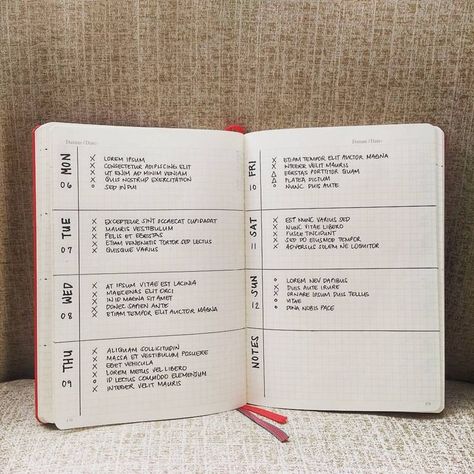 Datum / Date:
MON
06
X LOREM IPSUM
X CONSECTETUR ADIPISCING ELIT
X UT ENIM AD MINIM VENIAM
X QUIS NOSTRUD EXERCITATION
o SED IN DUI
TUE
07
X EXCEPTEUR SINT OCCAECAT CUPIDADAT
X MAURIS VESTIBULUM
X FELIS ET EGESTAS
X ETIAM VENENATIS TORTOR SED LECTUS
X QUISQUE VARIUS
WED
08
X AT IPSUM VITAE EST LACINIA
X MAECENAS ELIT ORCI
X IN ID MAGNA SIT AMET
X DONEC SAPIEN ANTE
X ETIAM TEMPOR ELIT AUCTOR MAGNA
THU
09
X ALIQUAM SOLLICITUDIN
X MASSA ET VESTIBULUM POSUERE
X EGET VEHICULA
X LOREM METUS VEL LIBERO
o ID LECTUS COMMODO ELEMENTUM
X INTEGER VELIT MAURIS
Datum / Date:
FRI
10
X ETIAM TEMPOR ELIT AUCTOR MAGNA
X INTEGER VELIT MAURIS
△ EGESTAS PORTTITOR QUAM
△ PLATEA DICTUM
o NUNC DUIS AUTE
SAT
11
X EST NUNC VARIUS SED
X NUNC VITAE LIBERO
X FUSCE TINCIDUNT
X SED DO EIUSMOD TEMPOR
X ADVERSUS SOLEM NE LOQUITOR
SUN
12
o LOREM NEV DAPIBUS
X DUIS AUTE IRURE
X ORNARE IPSUM DUIS TELLUS
o VITAE
o DONA NOBIS PACE
NOTES